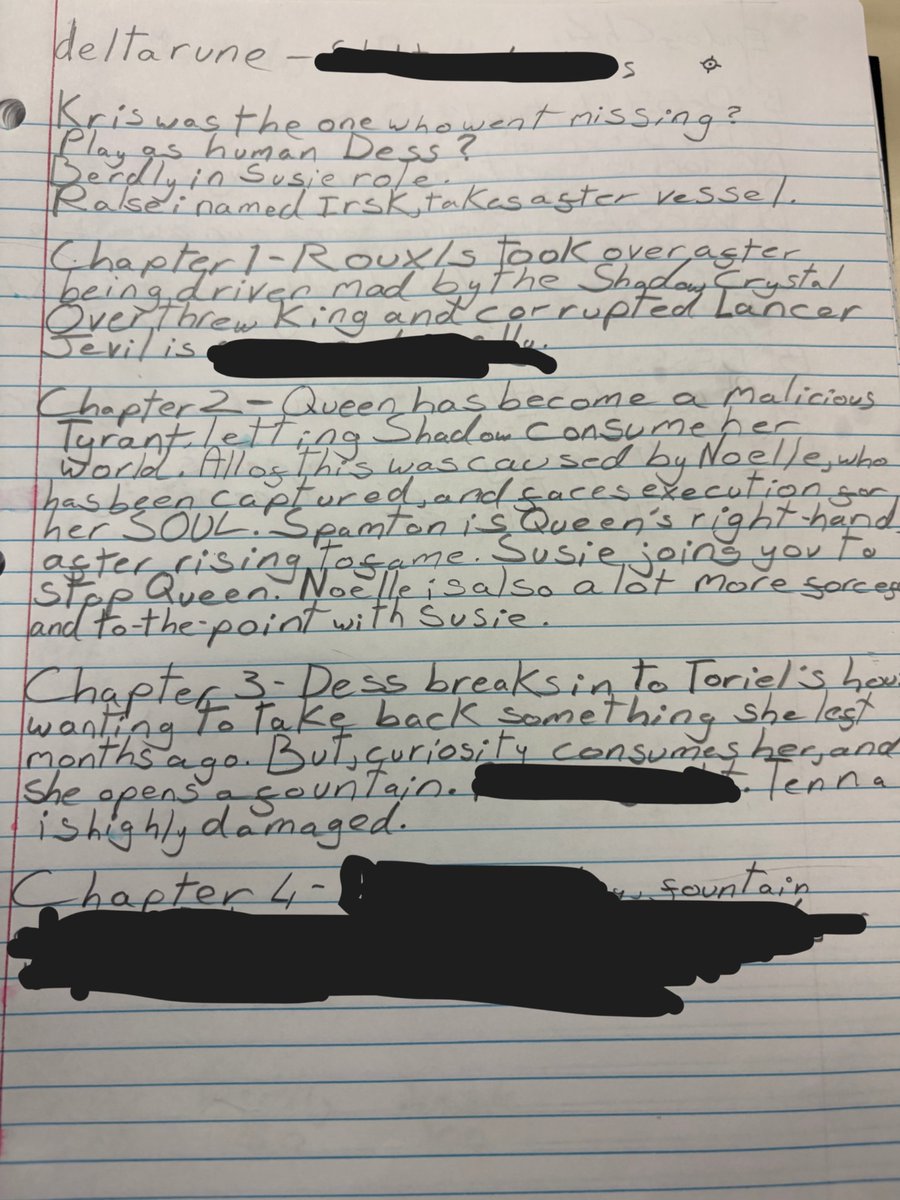 deltarune -
Kris was the one who went missing?
Play as human Dess?
Berdly in Susie role.
Ralsei named Irsk, takes after vessel.
Chapter 1 - Rouxls took over after
being driven mad by the Shadow Crystal
Overthrew King and corrupted Lancer
Jevil is
Chapter 2 - Queen has become a malicious
Tyrant, letting Shadow consume her
world. All of this was caused by Noelle, who
has been captured, and faces execution for
her SOUL. Spamton is Queen's right-hand
after rising to fame. Susie joins you to
stop Queen. Noelle is also a lot more
and to-the-point with Susie.
Chapter 3 - Dess breaks in to Toriel's
wanting to take back something she left
months ago. But, curiosity consumes her, and
she opens a fountain. Tenna
is highly damaged.
Chapter 4 - fountain